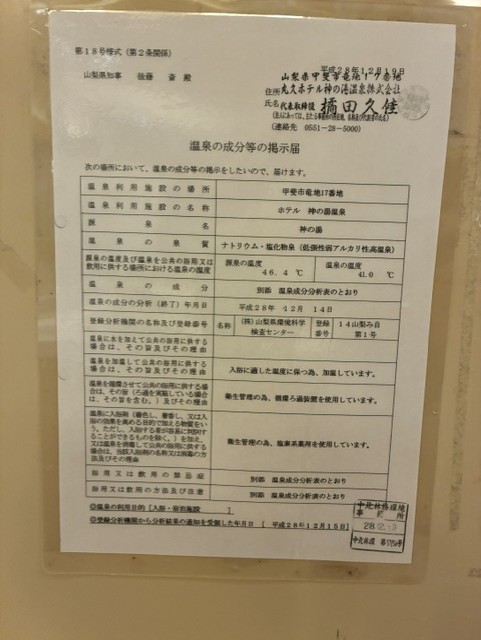 第18号様式（第2条関係）
平成28年12月19日
山梨県知事 後藤 斎 殿
山梨県甲斐市竜地17番地
住所 丸久ホテル神の湯温泉株式会社
氏名 代表取締役
（連絡先 0551-28-5000）
温泉の成分等の掲示届
次の場所において、温泉の成分等の掲示をしたいので、届けます。
温泉利用施設の場所 甲斐市竜地17番地
温泉利用施設の名称 ホテル 神の湯温泉
源泉名 神の湯
温泉の泉質 ナトリウム・塩化物泉（低張性弱アルカリ性高温泉）
源泉の温度及び温泉を公共の浴用又は 源泉の温度 温泉の温度
飲用に供する場所における温泉の温度 46.4 ℃ 41.0 ℃
温泉の成分 別添 温泉成分分析表のとおり
温泉の成分の分析（終了）年月日 平成28年 12月 14日
登録分析機関の名称及び登録番号 名称 （株）山梨県環境科学検査センター 登録番号 14山梨み自第1号
温泉に水を加えて公共の浴用に供する
場合は、その旨及びその理由
温泉を加温して公共の浴用に供する
場合は、その旨及びその理由
入浴に適した温度に保つ為、加温しています。
温泉を循環させて公共の浴用に供する場合
は、その旨（ろ過を実施している場合
は、その旨を含む。）及びその理由
衛生管理の為、循環ろ過装置を使用しています。
温泉に入浴剤（着色し、着香し、又は入
浴の効果を高める目的で加える物質をい
う。ただし、入浴する者が容易に判別す
ることができるものを除く。）を加え、
又は温泉を消毒して公共の浴用に供する
場合は、当該入浴剤の名称又は消毒の方
法及びその理由
衛生管理の為、塩素系薬剤を使用しています。
浴用又は飲用の禁忌症 別添 温泉成分分析表のとおり
浴用又は飲用の方法及び注意 別添 温泉成分分析表のとおり
◎温泉の利用目的［入浴・宿泊施設 ］
◎登録分析機関から分析結果の通知を受領した年月日 ［ 平成28年12月15日］